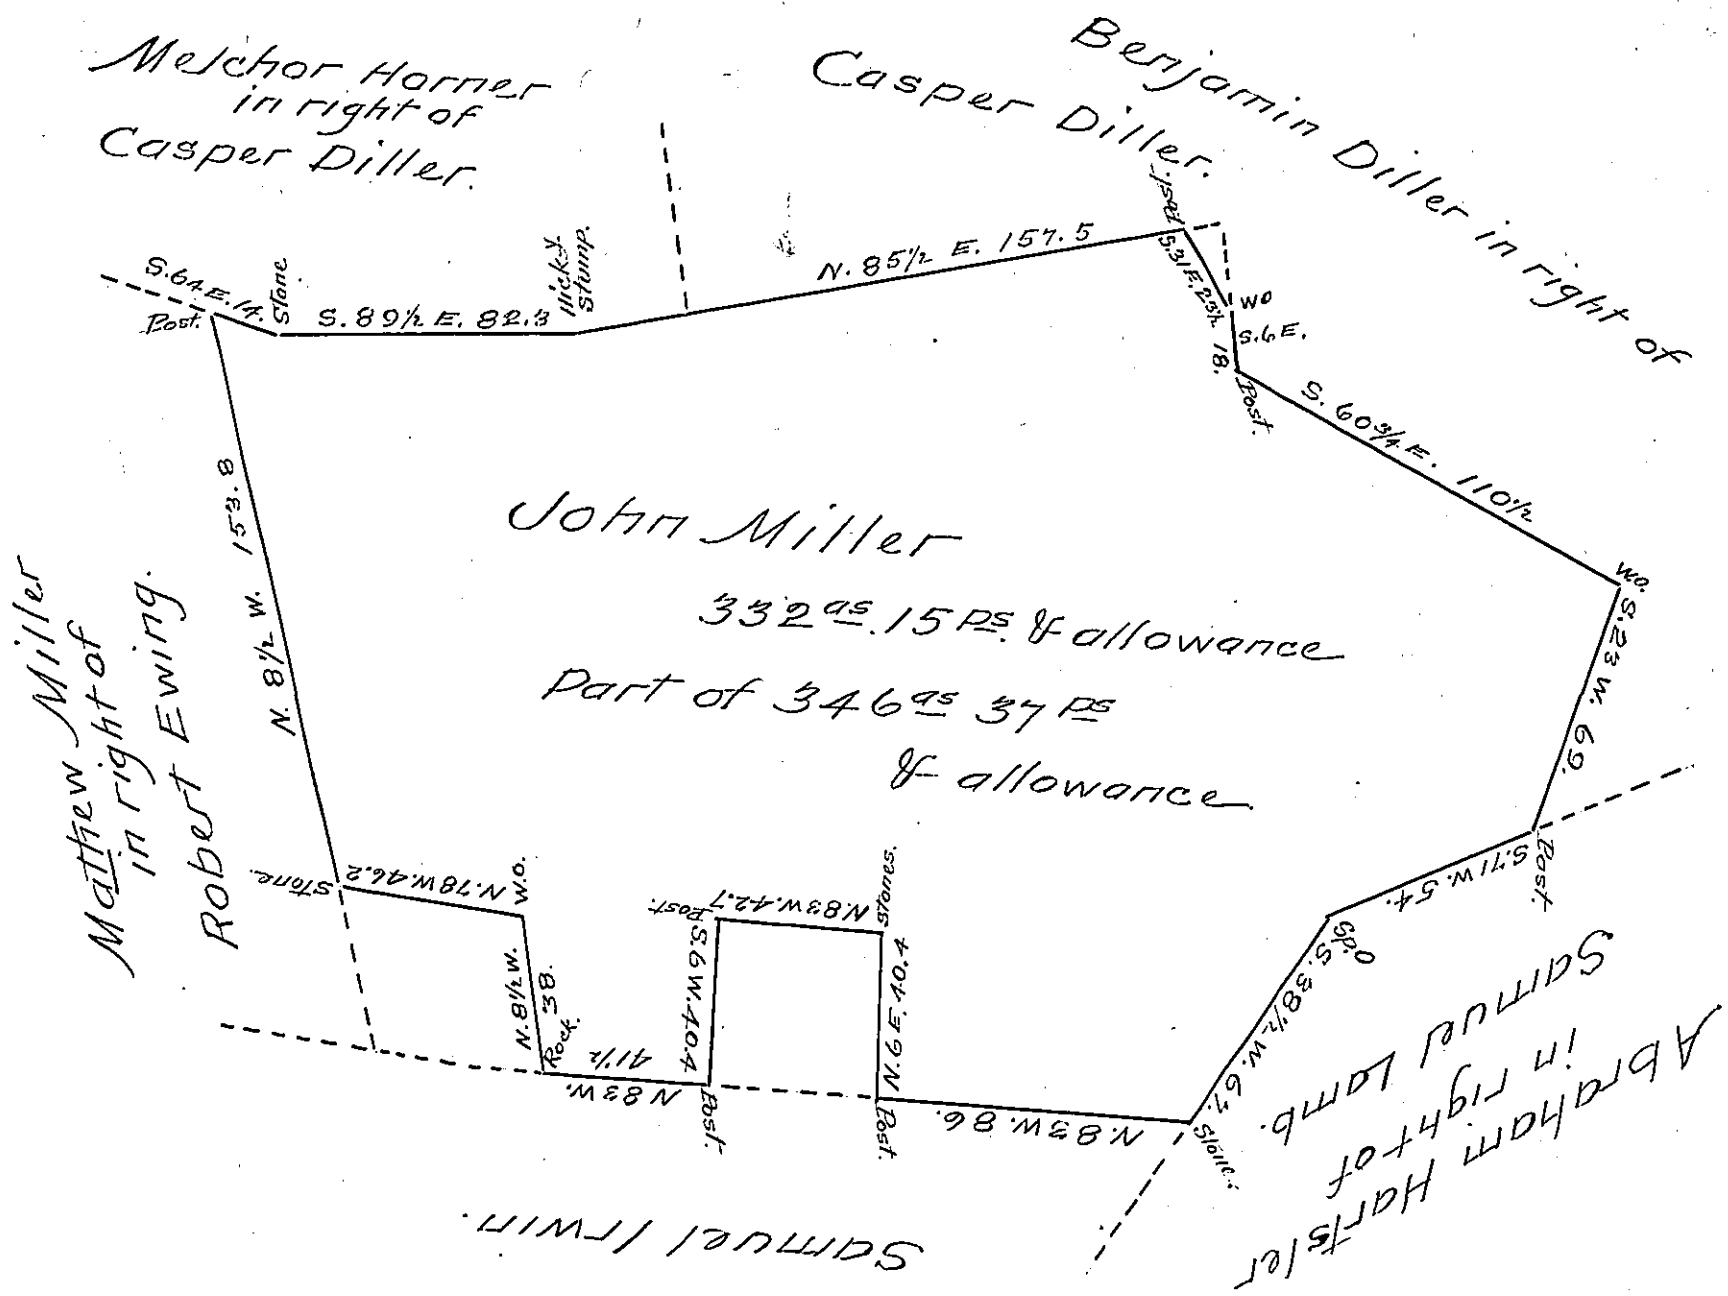 Melchor Horner
in right of
Casper Diller.
Casper Diller.
Benjamin Diller in right of
S. 64 E. 17.
Post.
Stone
S. 89 1/2 E. 82.3
Hick-y.
Stump.
N. 85 1/2 E. 157.5
Post.
S. 31 E. 23 1/2
WO
S. 6 E.
18.
Post.
S. 60 3/4 E. 110 1/2
W.O.
S. 23 W. 69.
Post.
S. 71 W. 54.
Sp. O.
S. 38 1/2 W. 67.
Stone.
N. 83 W. 86.
Post.
N. 6 E. 40.4
Stones.
N. 83 W. 42.7
Post.
S. 6 W. 40.4
Post.
N 83 W.
41 1/2
Rock.
N. 8 1/2 W.
38.
W.O.
N. 78 W. 46.2
Stone.
N. 8 1/2 W. 153.8
John Miller
332 as. 15 ps. & allowance
Part of 346 as 37 ps
& allowance
Mathew Miller
in right of
Robert Ewing.
Abraham Hartsler
in right of
Samuel Lamb.
Samuel Irwin.